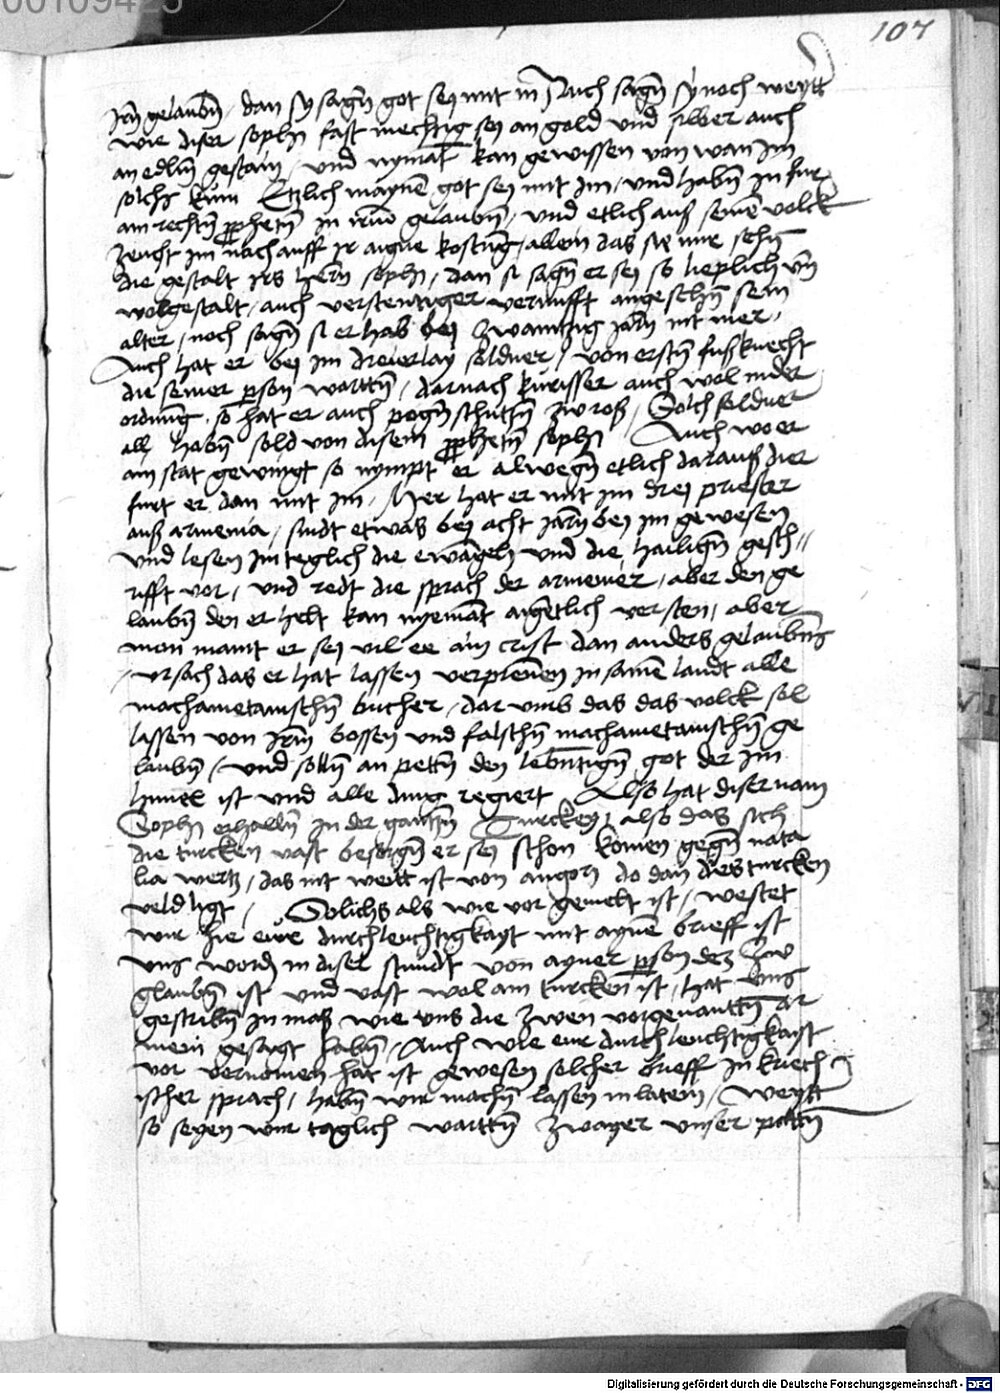 00109423
107
Irn gelaubn, dan sy sagn got sey mit im Auch sagn sy noch weytt
wie diser sophy fast mechtig sey an gold und silber auch
an edlm gestain, und nymat kan gewissen von wan im
solchs kum Etzlich mayne got sey mit im, und habn in fur
am rechtn prophetn in irm gelaubn, und etlich auß seine volck
zeucht im nach auff ir aigne kostung, allein das sie nur sehn
die gestalt irs hern sophy, dan si sagn er sey so lieplich un
wolgestalt, auch verstentiger vernufft angesehn sein
alter, noch sagn si er hab bey zwaintzig jarn nit mer,
Auch hat er bey im dreyerlay soldner, von erstn fußknecht
die seiner person warttn, darnach kurisser auch wol in der
ordnung, so hat er auch pognschutzn zw roß, Solch soldner
all habn sold von disem prophetn sophy Auch wo er
ain stat gewingt so nympt er alwegn etlich darauß die
furt er dan mit im, Mer hat er mit im drey priester
auß armenia, sindt etwas bey acht jarn bey im gewesen
und lesen im teglich die ewangely und die hailign gesch//
rifft vor, und redt die sprach der armenier, aber den ge
laubn den er helt kan nyemat aigetlich versten, aber
man maint er sey vil ee ain crist dan anders gelaubns
ursach das er hat lassen verprennen in seinem landt alle
machametanischn bucher, dar umb das das volck sol
lassen von irm bossen und falschn machametanischn ge
laubn, und solln an pettn den lebntign got der im
himel ist und alle ding regiert Also hat diser nam
Sophy erhalln in der gantzn Turckey, also das sich
die turcken vast besorgn er sey schon komen gegn nato
lia wertz, das nit weitt ist von angory do dan des turcken
veld ligt, Solichs als wie vor gemelt ist, westet
wir hie eure durchleuchtigkayt mit ayne brieff ist
uns wordn in diser stundt von ayner person dez zw
glaubn ist und vast wol am turcken ist, hat uns
geschribn in maß wie uns die zwen vorgenanttn ar
meni gesagt habn, Auch wie eur durchleuchtigkaist
vor vernomen hat ist gewesen solcher brieff in kriech
ischer sprach, habn wir machn lassen in latein, weytt
so seyen wir teglich warttn zwayer unser pottn
Digitalisierung gefördert durch die Deutsche Forschungsgemeinschaft - DFG